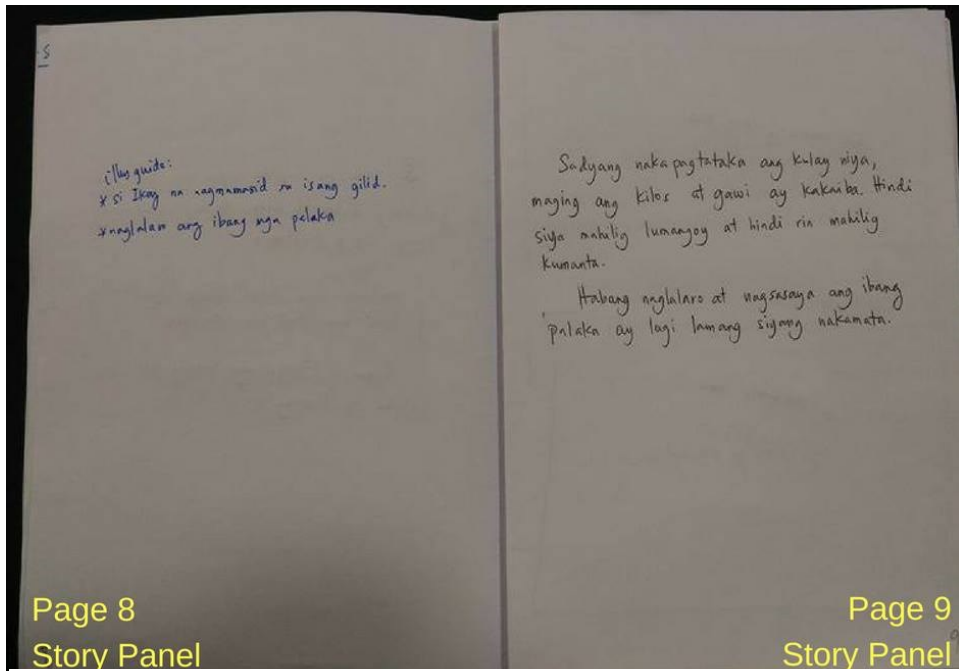 illus guide:
* si Ikay na nagmamasid sa isang gilid.
* naglalaro ang ibang mga palaka
Page 8
Story Panel
Sadyang nakapagtataka ang kulay niya,
maging ang kilos at gawi ay kakaiba. Hindi
siya mahilig lumangoy at hindi rin mahilig
kumanta.
Habang naglalaro at nagsasaya ang ibang
palaka ay lagi lamang siyang nakamata.
Page 9
Story Panel